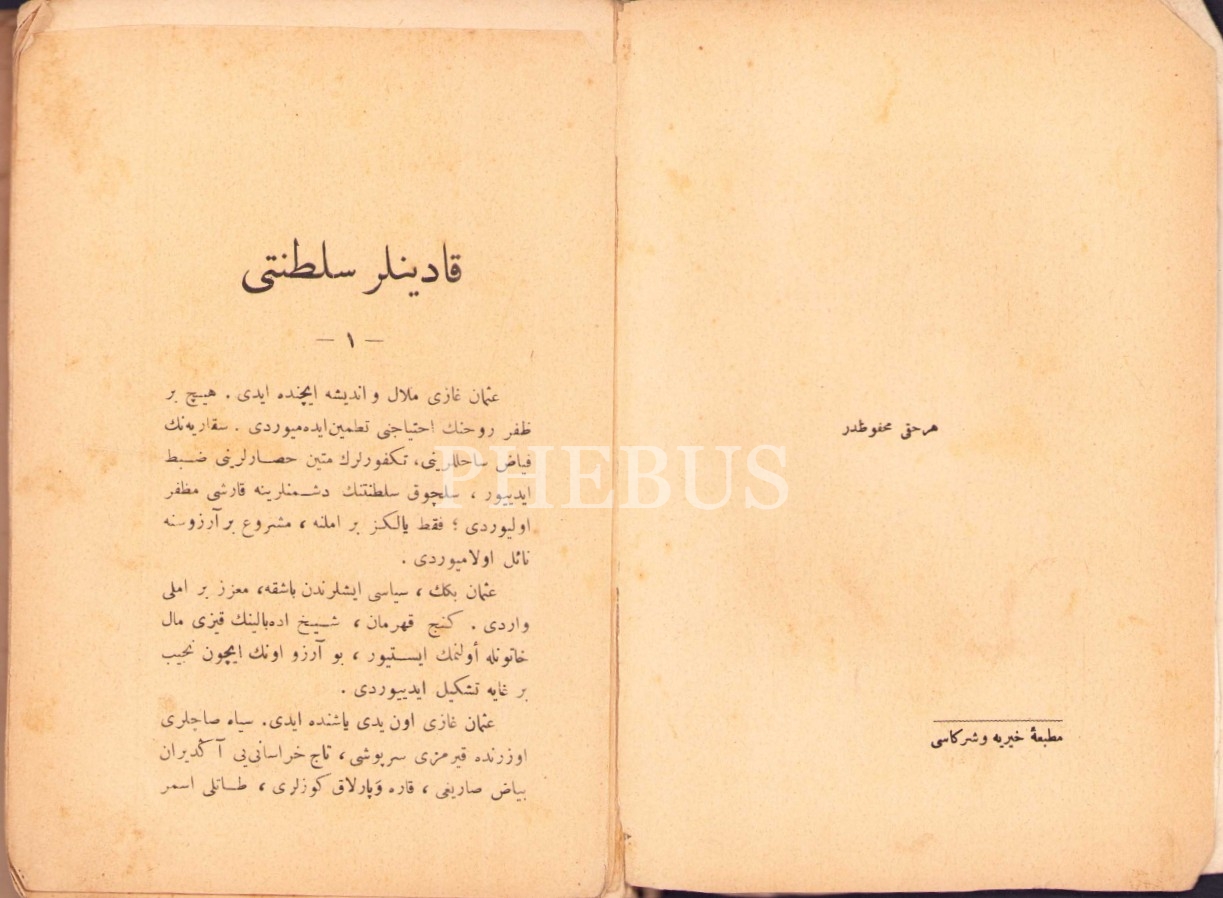 هر حقی محفوظدر
مطبعهٔ خیریه و شركاسی
قادینلر سلطنتی
— ١ —
عثمان غازی ملال و اندیشه ایچنده ایدی . هیچ بر
ظفر روحنك احتیاجنی تطمین ایده‌میوردی . سقاریه‌نك
فیاض ساحللرینی، تكفورلرك متین حصارلرینی ضبط
ایدییور ، سلچوق سلطنتنك دشمنلرینه قارشی مظفر
اولیوردی ؛ فقط یالكز بر امله ، مشروع بر آرزوسنه
نائل اولامیوردی .
عثمان بكك ، سیاسی ایشلرندن باشقه، معزز بر املی
واردی . كنج قهرمان ، شیخ اده‌بالینك قیزی مال
خاتونله أولنمك ایستیور ، بو آرزو اونك ایچون نجیب
بر غایه تشكیل ایدییوردی .
عثمان غازی اون یدی یاشنده ایدی. سیاه صاچلری
اوزرنده قیرمزی سرپوشی، تاج خراسانی‌یی آ كدیران
بیاض صاریغی ، قاره و پارلاق كوزلری ، طاتلی اسمر
PHEBUS